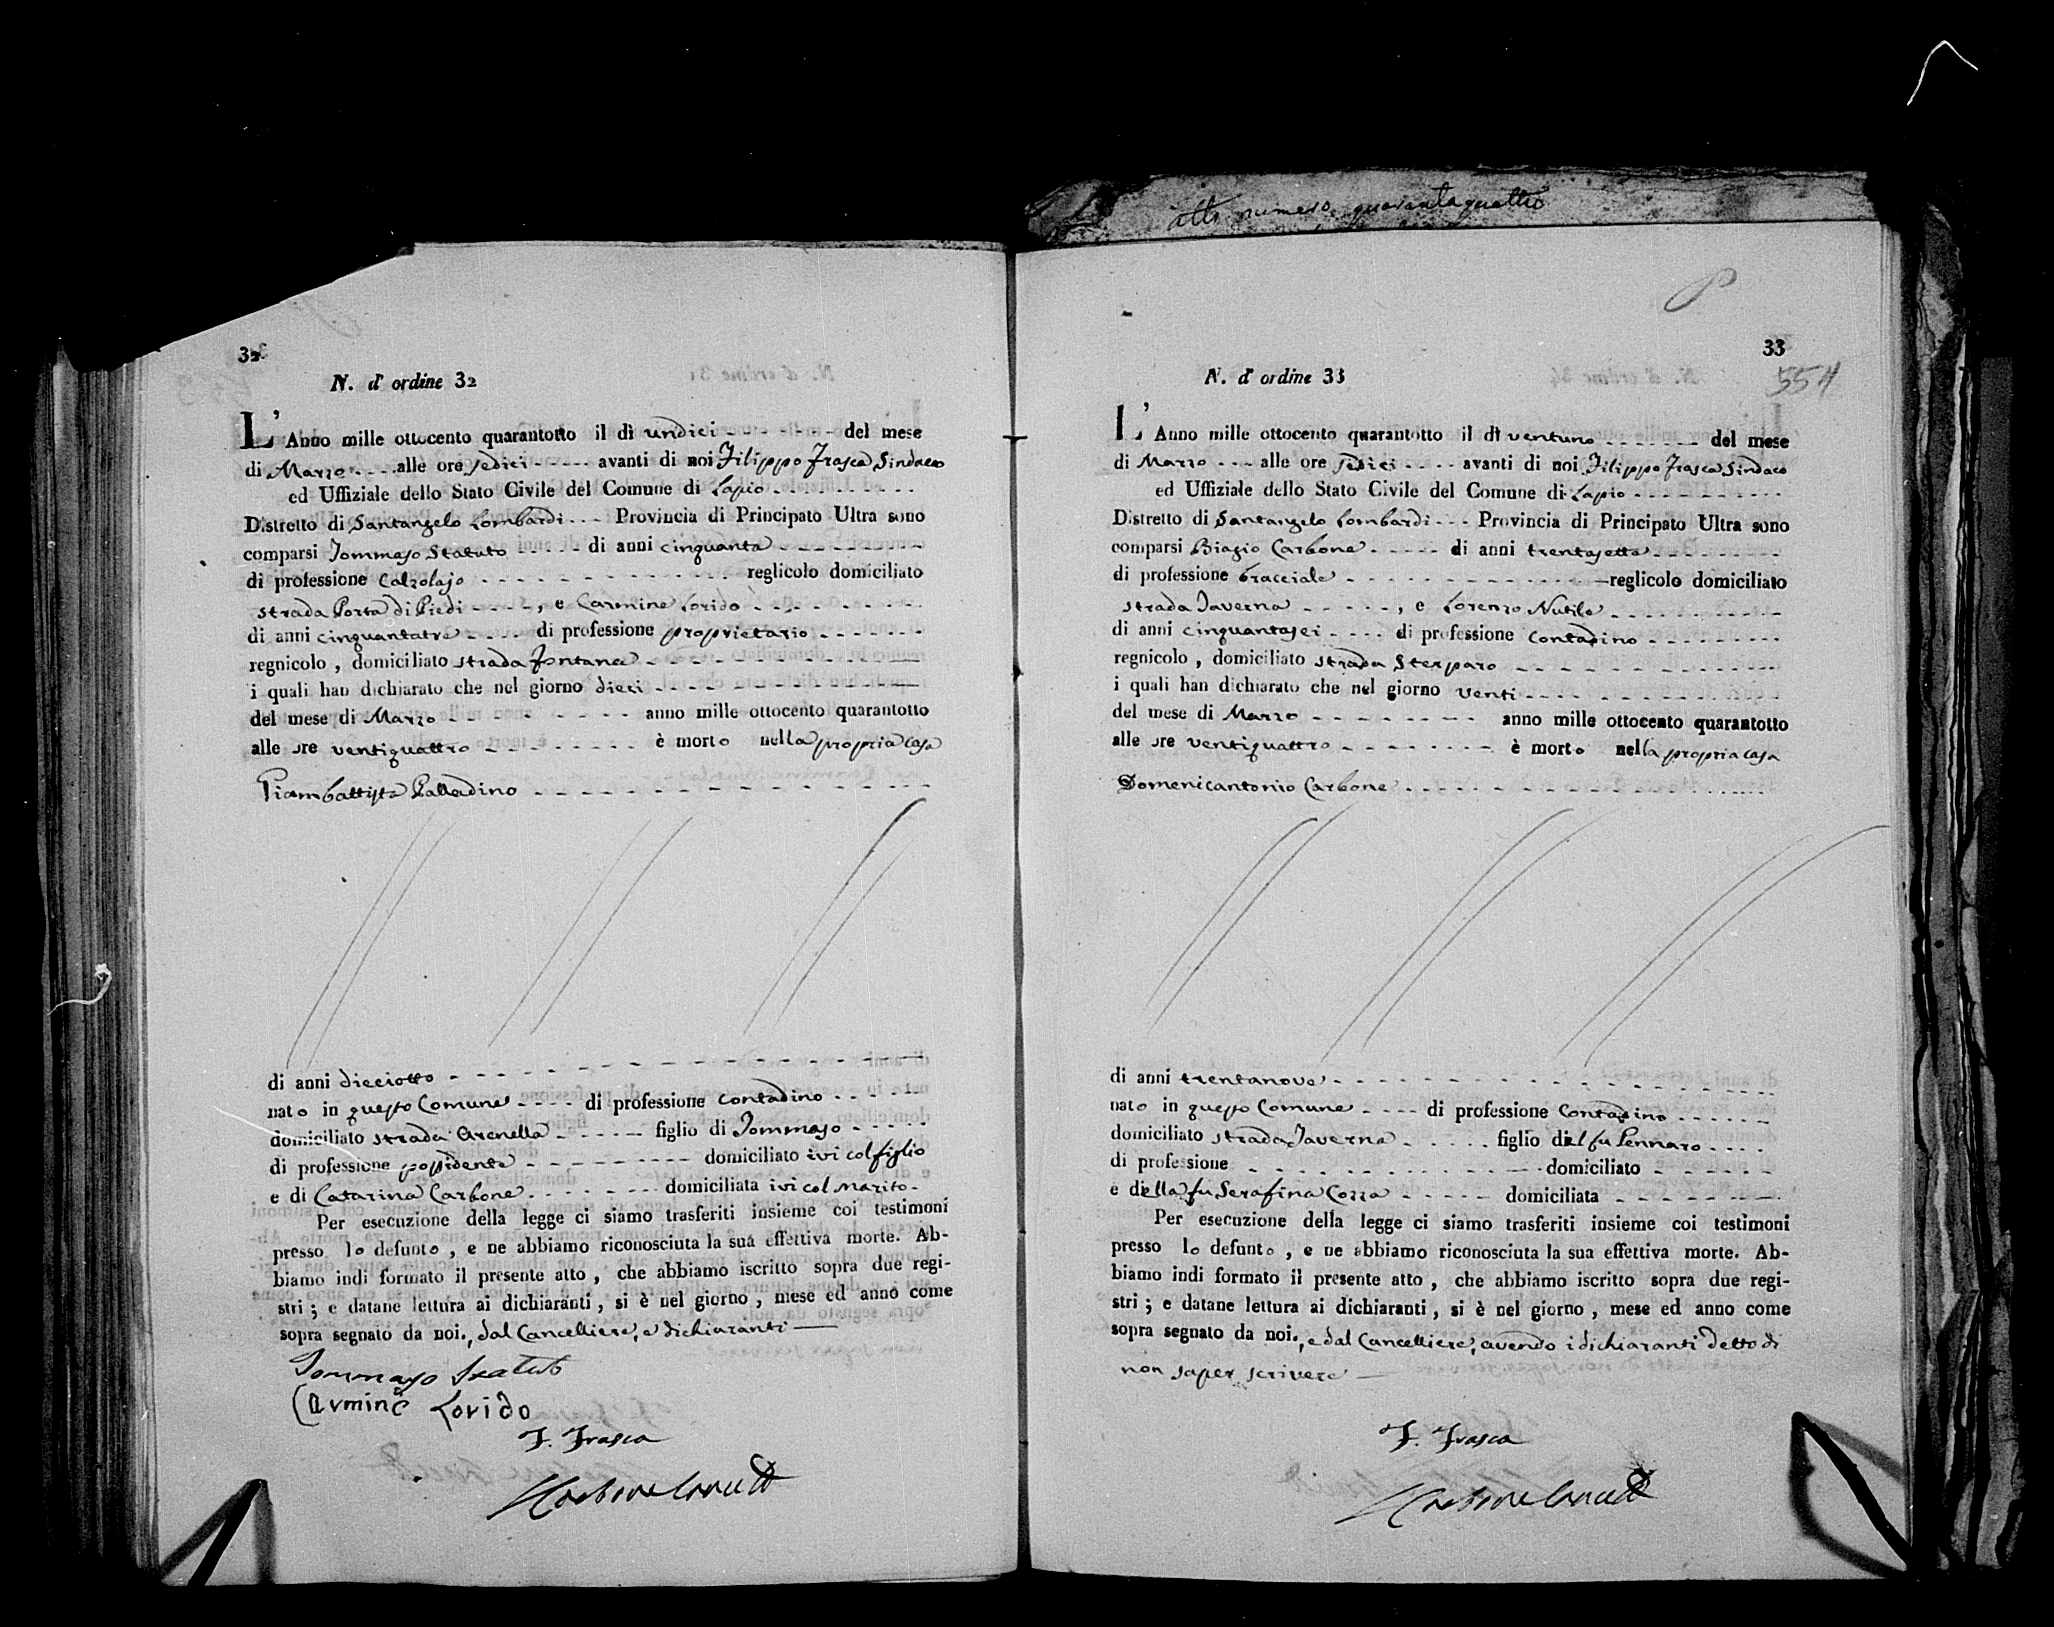 32
N. d' ordine 32
L' Anno mille ottocento quarantotto il dì undici del mese
di Marzo alle ore sedici avanti di noi Filippo Frasca Sindaco
ed Uffiziale dello Stato Civile del Comune di Lapio
Distretto di Santangelo Lombardi Provincia di Principato Ultra sono
comparsi Tommaso Statuto di anni cinquanta
di professione Calzolajo reglicolo domiciliato
strada Porta di Piedi , e Carmine Lorido
di anni cinquantatre di professione proprietario
regnicolo , domiciliato strada Fontana
i quali han dichiarato che nel giorno dieci
del mese di Marzo anno mille ottocento quarantotto
alle ore ventiquattro è morto nella propria casa
Giambattista Palladino
di anni dieciotto
nato in questo Comune di professione contadino
domiciliato strada Arenella figlio di Tommaso
di professione possidente domiciliato ivi col figlio
e di Catarina Carbone domiciliata ivi col marito
Per esecuzione della legge ci siamo trasferiti insieme coi testimoni
presso lo defunto , e ne abbiamo riconosciuta la sua effettiva morte. Ab-
biamo indi formato il presente atto , che abbiamo iscritto sopra due regi-
stri ; e datane lettura ai dichiaranti , si è nel giorno , mese ed anno come
sopra segnato da noi., dal Cancelliere, e dichiaranti
Tommaso Statuto
Carmine Lorido
F. Frasca
atto numero quarantaquattro
33
554
N. d' ordine 33
L' Anno mille ottocento quarantotto il dì ventuno del mese
di Marzo alle ore sedici avanti di noi Filippo Frasca Sindaco
ed Uffiziale dello Stato Civile del Comune di Lapio
Distretto di Santangelo Lombardi Provincia di Principato Ultra sono
comparsi Biagio Carbone di anni trentasette
di professione bracciale reglicolo domiciliato
strada Taverna , e Lorenzo Nutile
di anni cinquantasei di professione contadino
regnicolo , domiciliato strada Sterparo
i quali han dichiarato che nel giorno venti
del mese di Marzo anno mille ottocento quarantotto
alle ore ventiquattro è morto nella propria casa
Domenicantonio Carbone
di anni trentanove
nato in questo Comune di professione Contadino
domiciliato strada Taverna figlio del fu Gennaro
di professione domiciliato
e della fu Serafina Cozza domiciliata
Per esecuzione della legge ci siamo trasferiti insieme coi testimoni
presso lo defunto , e ne abbiamo riconosciuta la sua effettiva morte. Ab-
biamo indi formato il presente atto , che abbiamo iscritto sopra due regi-
stri ; e datane lettura ai dichiaranti , si è nel giorno , mese ed anno come
sopra segnato da noi., e dal Cancelliere, avendo i dichiaranti detto di
non saper scrivere
F. Frasca